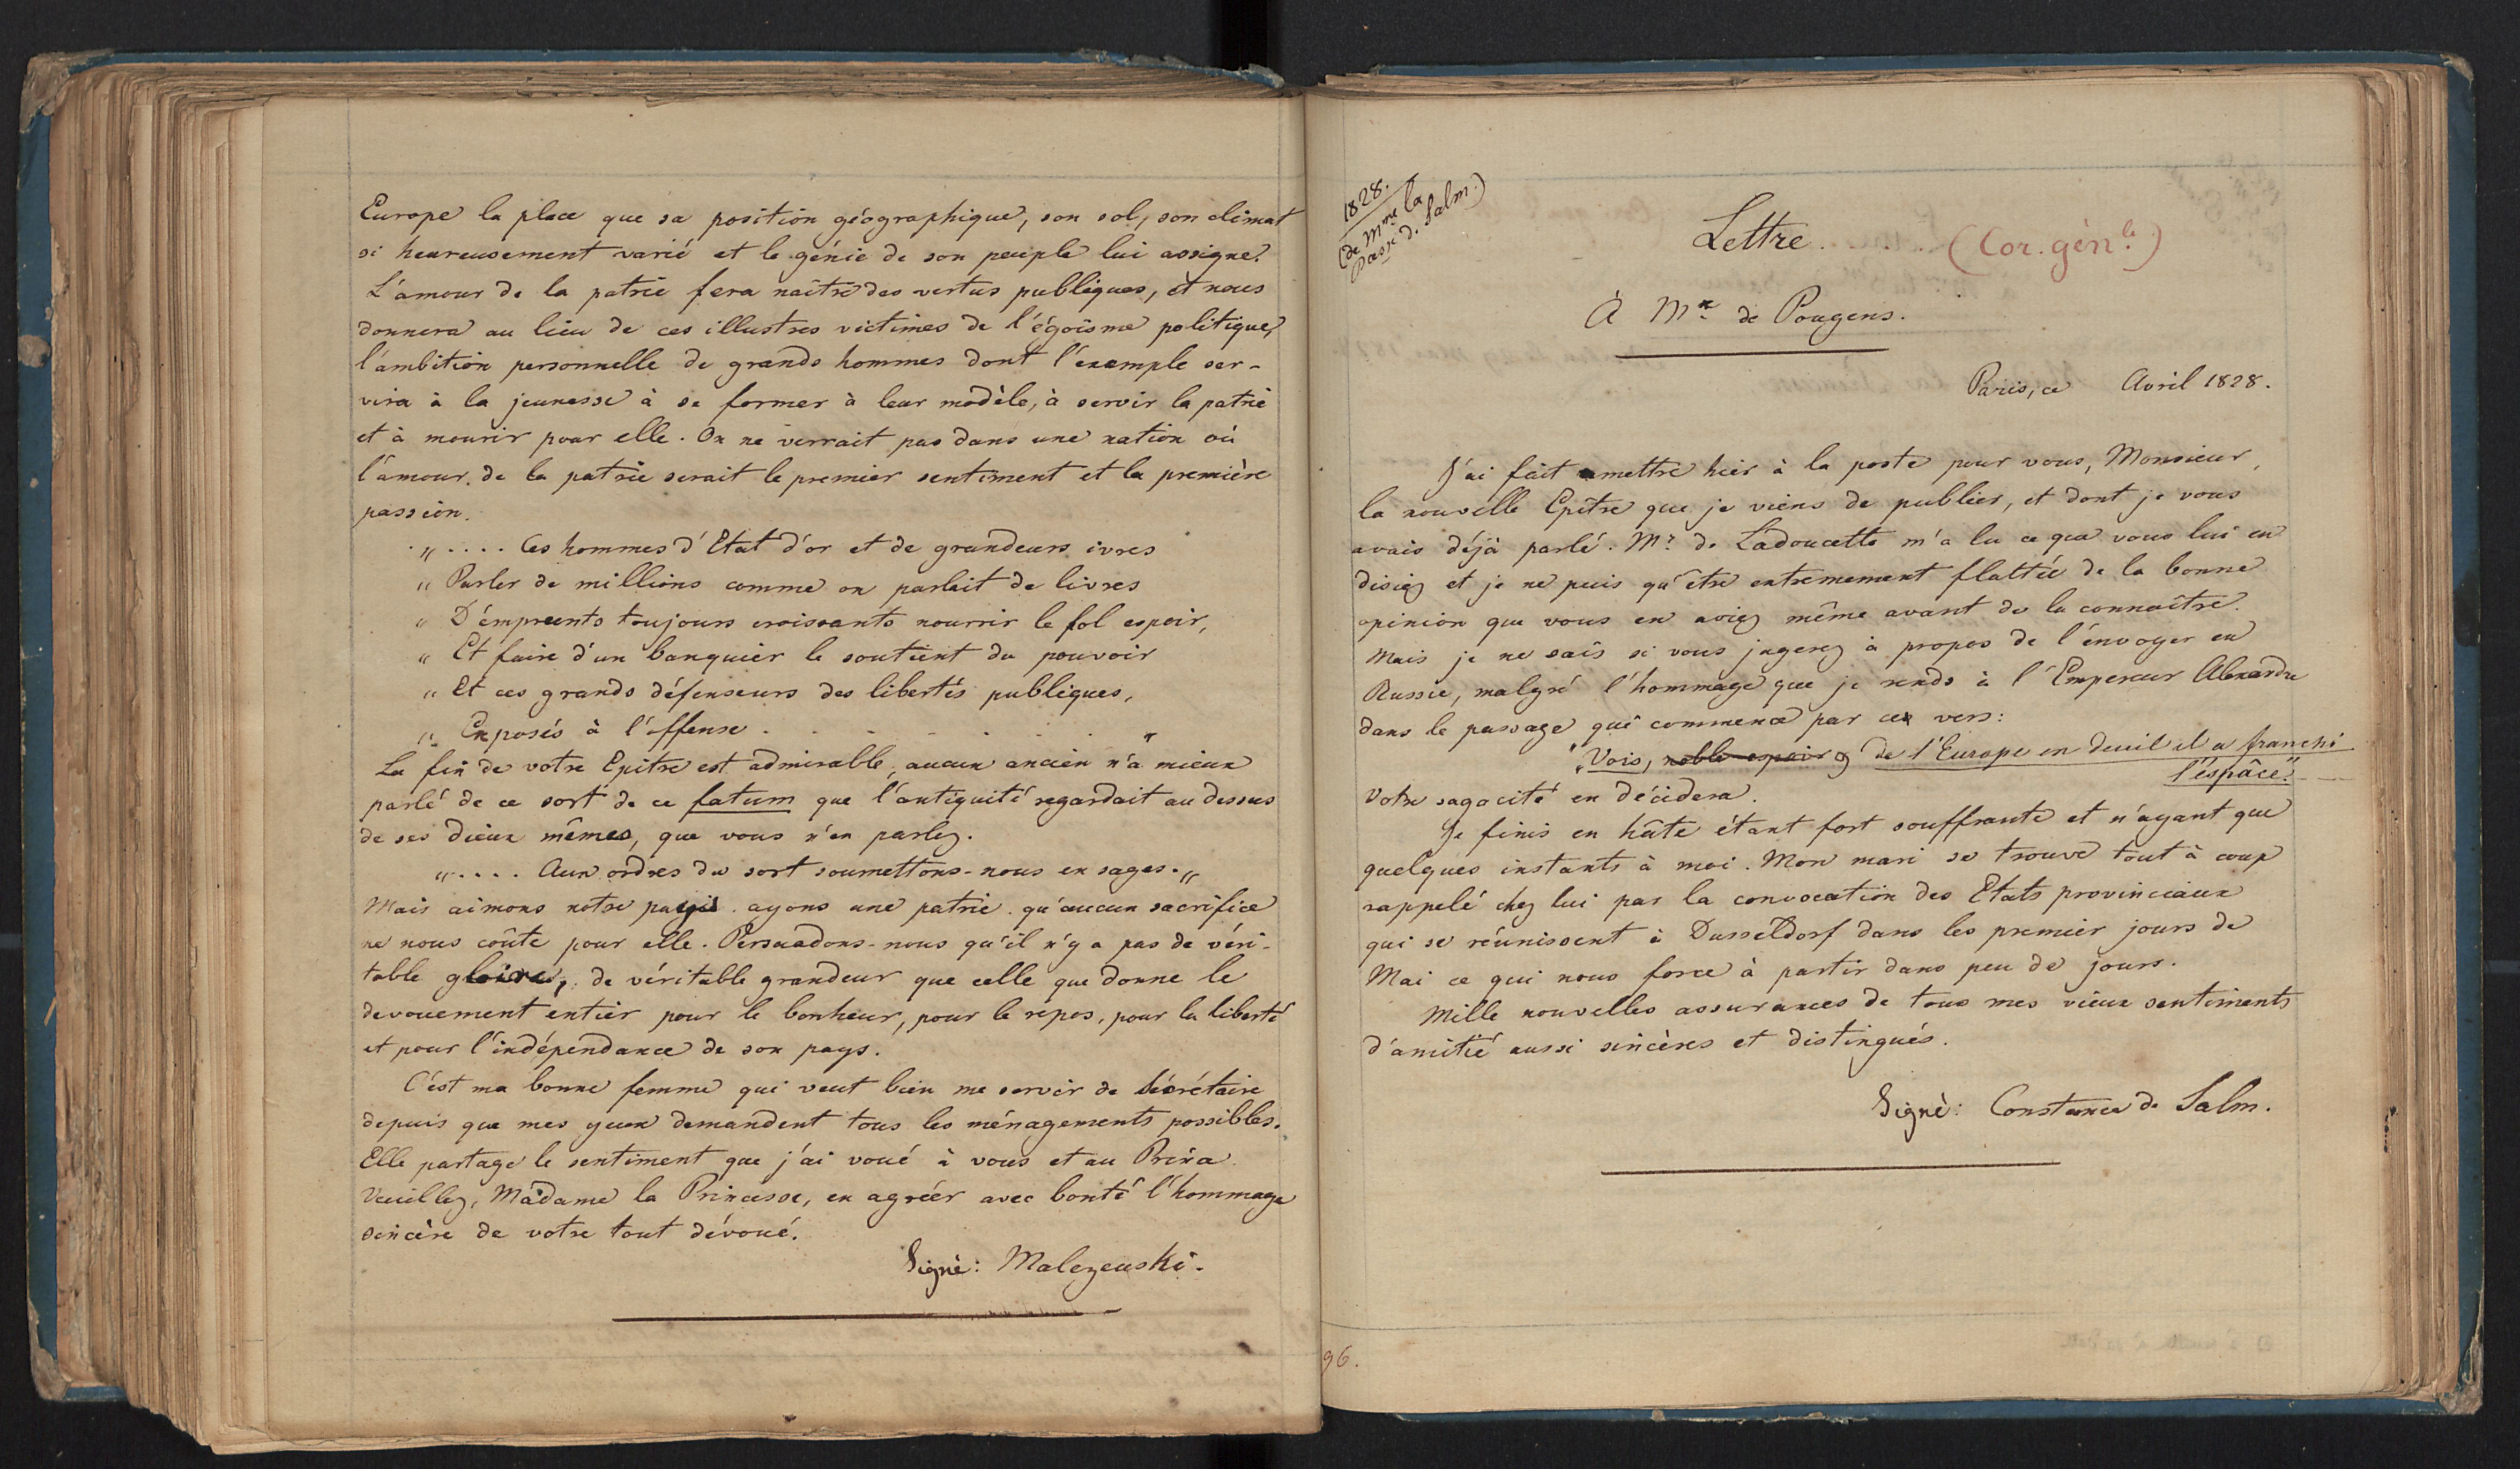 Europe la place que sa position géographique, son sol, son climat
si heureusement varié et le génie de son peuple lui assigne.
L'amour de la patrie fera naître des vertus publiques, et nous
donnera au lieu de ces illustres victimes de l'égoisme politique,
l'ambition personnelle de grands hommes dont l'exemple ser-
vira à la jeunesse à se former à leur modèle, à servir la patrie
et à mourir pour elle. On ne verrait pas dans une nation où
l'amour de la patrie serait le premier sentiment et la première
passion.
".... Ces hommes d'Etat d'or et de grandeurs ivres
" Parler de millions comme on parlait de livres
" D'émprunts toujours croissants nourrir le fol espoir,
" Et faire d'un banquier le soutient du pouvoir
" Et ces grands défenseurs des libertés publiques,
" Exposés à l'offense . . . . . . "
La fin de votre Epitre est admirable, aucun ancien n'a mieux
parlé de ce sort de ce fatum que l'antiquité regardait au dessus
de ses dieux mêmes, que vous n'en parlez.
".... Aux ordres du sort soumettons-nous en sages."
Mais aimons notre pays. ayons une patrie. qu'aucun sacrifice
ne nous coûte pour elle. Persuadons-nous qu'il n'y a pas de véri-
table gloire, de véritable grandeur que celle que donne le
devouement entier pour le bonheur, pour le repos, pour la liberté
et pour l'indépendance de son pays.
C'est ma bonne femme qui veut bien me servir de sécrétaire
depuis que mes yeux demandent tous les ménagements possibles.
Elle partage le sentiment que j'ai voué à vous et au
Veuillez, Madame la Princesse, en agréer avec bonté l'hommage
sincère de votre tout dévoué.
Signé: Malezewski.
1828.
(de Mme la
Passe. d. Salm.)
Lettre . . . . (Cor. génle.)
À Mr. de Pougens.
Paris, ce Avril 1828.
J'ai fait mettre hier à la poste pour vous, Monsieur,
la nouvelle Epître que je viens de publier, et dont je vous
avais déjà parlé. Mr. de Ladoucette m'a lu ce que vous lui en
disiez et je ne puis qu'être extremement flattée de la bonne
opinion que vous en aviez même avant de la connaître.
Mais je ne sais si vous jugerez à propos de l'envoyer en
Russie, malgré l'hommage que je rends à l'Empereur Alexandre
dans le passage qui commence par ces vers:
"Vois, noble espoir de l'Europe en deuil il a franchi
l'espâce."
Votre sagacité en décidera.
Je finis en hâte étant fort souffrante et n'ayant que
quelques instants à moi. Mon mari se trouve tout à coup
rappelé chez lui par la convocation des Etats provinciaux
qui se réunissent à Dusseldorf dans les premier jours de
Mai ce qui nous force à partir dans peu de jours.
Mille nouvelles assurances de tous mes vieux sentiments
d'amitié aussi sincères et distingués.
Signé: Constance de Salm.
96.